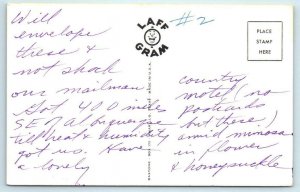 Will
envelope
these & +
not shock
our mailman.
Got 400 miles
SE of Albuquerque
till heat & humidity
got us. Have
a lovely
LAFF
GRAM
#2
PLACE
STAMP
HERE
country
motel (no
postcards
but these)
amid mimosa
in flower
& honeysuckle